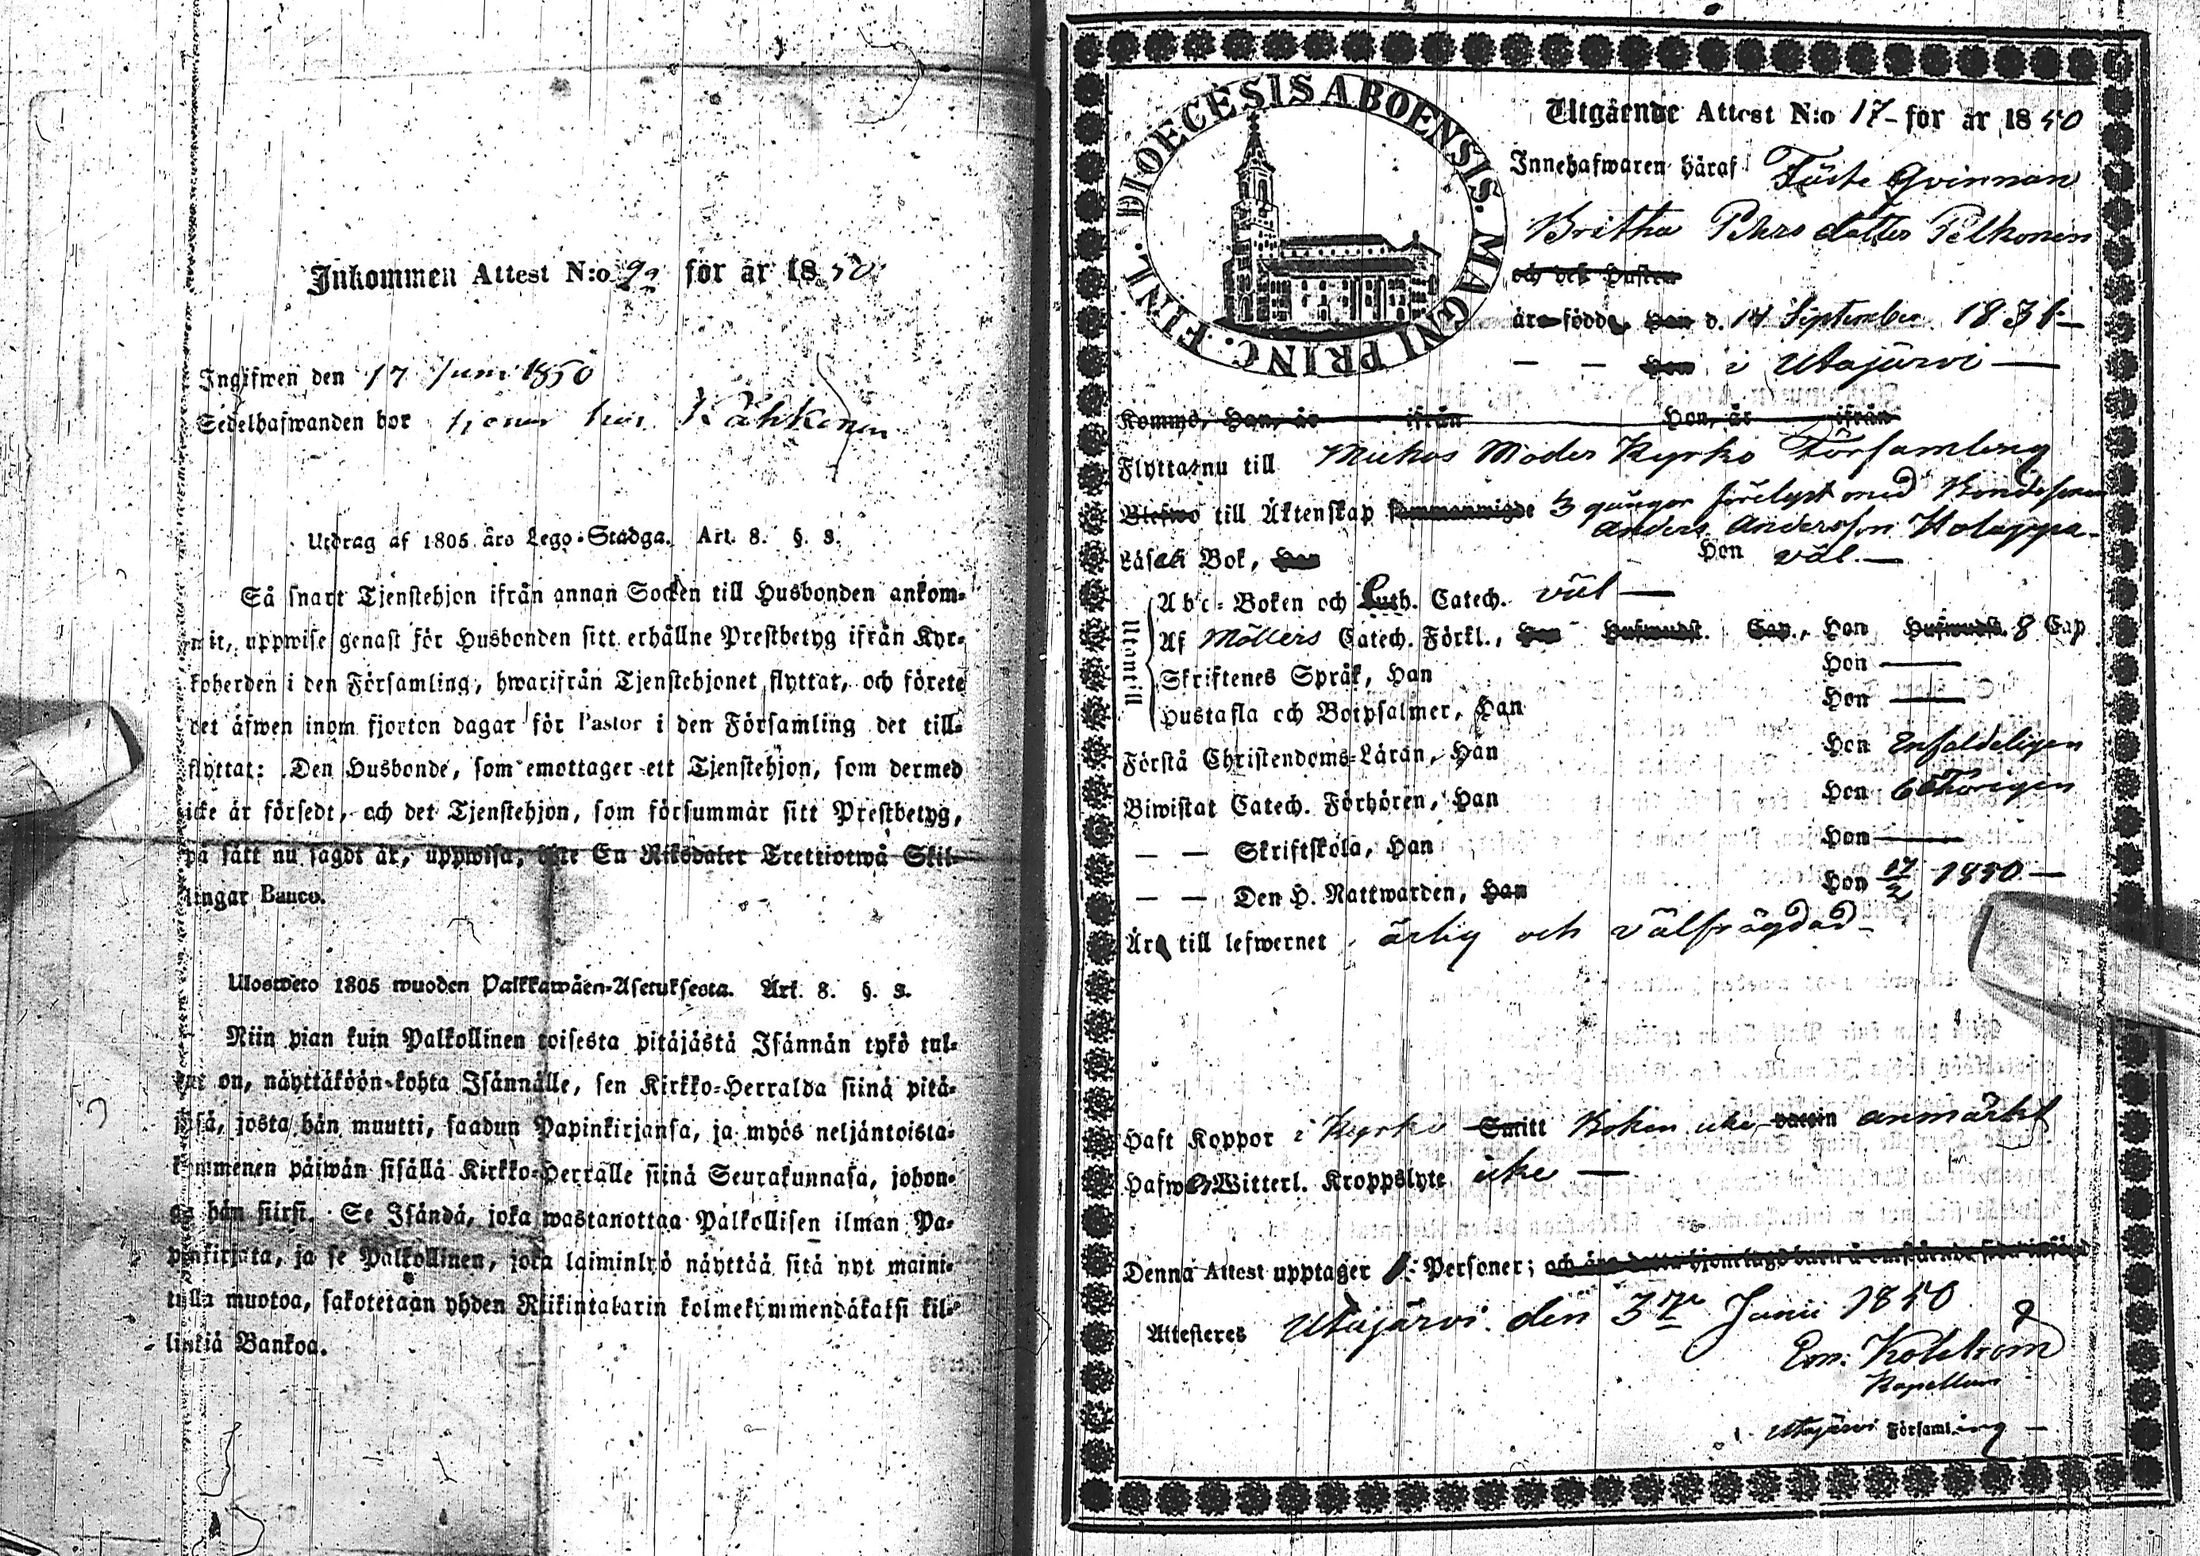 Inkommen Attest N:o 92 för år 1850
Ingifwen den 17 Juni 1850
Sedelhafwanden bor Kähkönen
Utdrag af 1805 års Lego-Stadga. Art. 8. §. 3.
Så snart Tjenstehjon ifrån annan Socken till Husbonden ankom-
mit, uppwise genast för Husbonden sitt erhållne Prestbetyg ifrån Kyr-
koherden i den Församling, hwarifrån Tjenstehjonet flyttat, och förete
det äfwen inom fjorton dagar för Pastor i den Församling det till-
flyttat: Den Husbonde, som emottager ett Tjenstehjon, som dermed
icke är försedt, och det Tjenstehjon, som försummar sitt Prestbetyg,
på sätt nu sagdt är, uppwisa, böte En Riksdaler Trettiotwå Skil-
lingar Banco.
Ulosweto 1805 wuoden Palkkawäen-Asetuksesta. Art. 8. §. 3.
Niin pian kuin Palkollinen toisesta pitäjästä Isännän tykö tul-
lut on, näyttäköön kohta Isännälle, sen Kirkko-Herralda siinä pitä-
jäsä, josta hän muutti, saadun Papinkirjansa, ja myös neljäntoista-
kymmenen päiwän sisällä Kirkko-Herralle siinä Seurakunnasa, johon-
ga hän siirsi. Se Isändä, joka wastanottaa Palkollisen ilman Pa-
pinkirjata, ja se Palkollinen, joka laiminlyö näyttää sitä nyt maini-
tulla muotoa, sakotetaan yhden Riikintalarin kolmekymmendäkaksi kil-
linkiä Bankoa.
DIOECESIS ABOENSIS. MAGNI PRINC. FINL.
Utgående Attest N:o 17 för år 1850
Innehafwaren häraf Fäste Qvinnan
Britha Pehrsdotter Pelkonen
och dess Hustru
äro födde, Han d. 14 September 1831
Hon i Utajärvi
Komne, Han, år ifrån Hon, år ifrån
Flytta nu till Muhos Moder Kyrko Församling
Blefwo till Äktenskap sammanwigde 3 gångor förelyst med Bondesonen
Anders Andersson Holappa.
Läsa i Bok, Han Hon väl
Utantill
Abc-Boken och Luth. Catech. väl
Af Möllers Catech. Förkl., Han Hufwudst. Cap., Hon Hufwudst. 8 Cap
Skriftenes Språk, Han Hon
Hustafla och Botpsalmer, Han Hon
Förstå Christendoms-Läran, Han Hon Enfaldeligen
Biwistat Catech. Förhören, Han Hon
Skriftskola, Han Hon
Den H. Nattwarden, Han Hon 17/2 1850
Äro till lefwernet ärlig och välfrägdad
Haft Koppor i Kyrko Smitt Boken icke vattin anmärkt
Hafwa Witterl. Kroppslyte icke
Denna Attest upptager 1 Personer;
Attesteres Utajärvi den 3 Junii 1850
Kapellan
i Utajärvi Församling